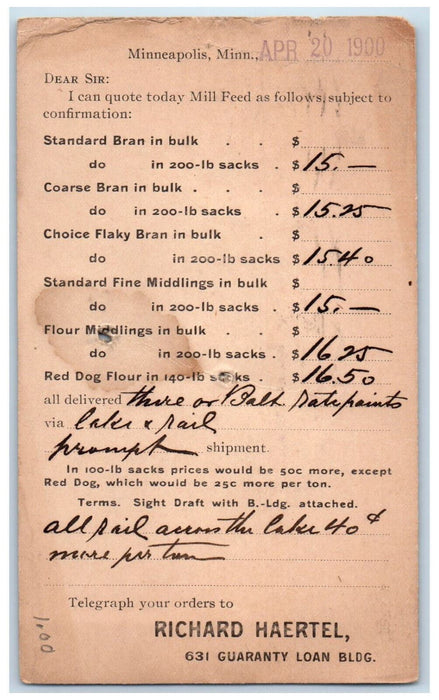 Minneapolis, Minn., APR 20 1900
DEAR SIR:
I can quote today Mill Feed as follows, subject to
confirmation:
Standard Bran in bulk . . $
do in 200-lb sacks . $ 15.—
Coarse Bran in bulk . . . $
do in 200-lb sacks . $ 15.25
Choice Flaky Bran in bulk . $
do in 200-lb sacks $ 15.40
Standard Fine Middlings in bulk $
do in 200-lb sacks . $ 15.—
Flour Middlings in bulk . . $
do in 200-lb sacks . $ 16.25
Red Dog Flour in 140-lb sacks . $ 16.50
all delivered there or Balt. rate points
via lake & rail
prompt shipment.
In 100-lb sacks prices would be 50c more, except
Red Dog, which would be 25c more per ton.
Terms. Sight Draft with B.-Ldg. attached.
all rail across the lake 40¢
more per ton
Telegraph your orders to
RICHARD HAERTEL,
631 GUARANTY LOAN BLDG.
1.00